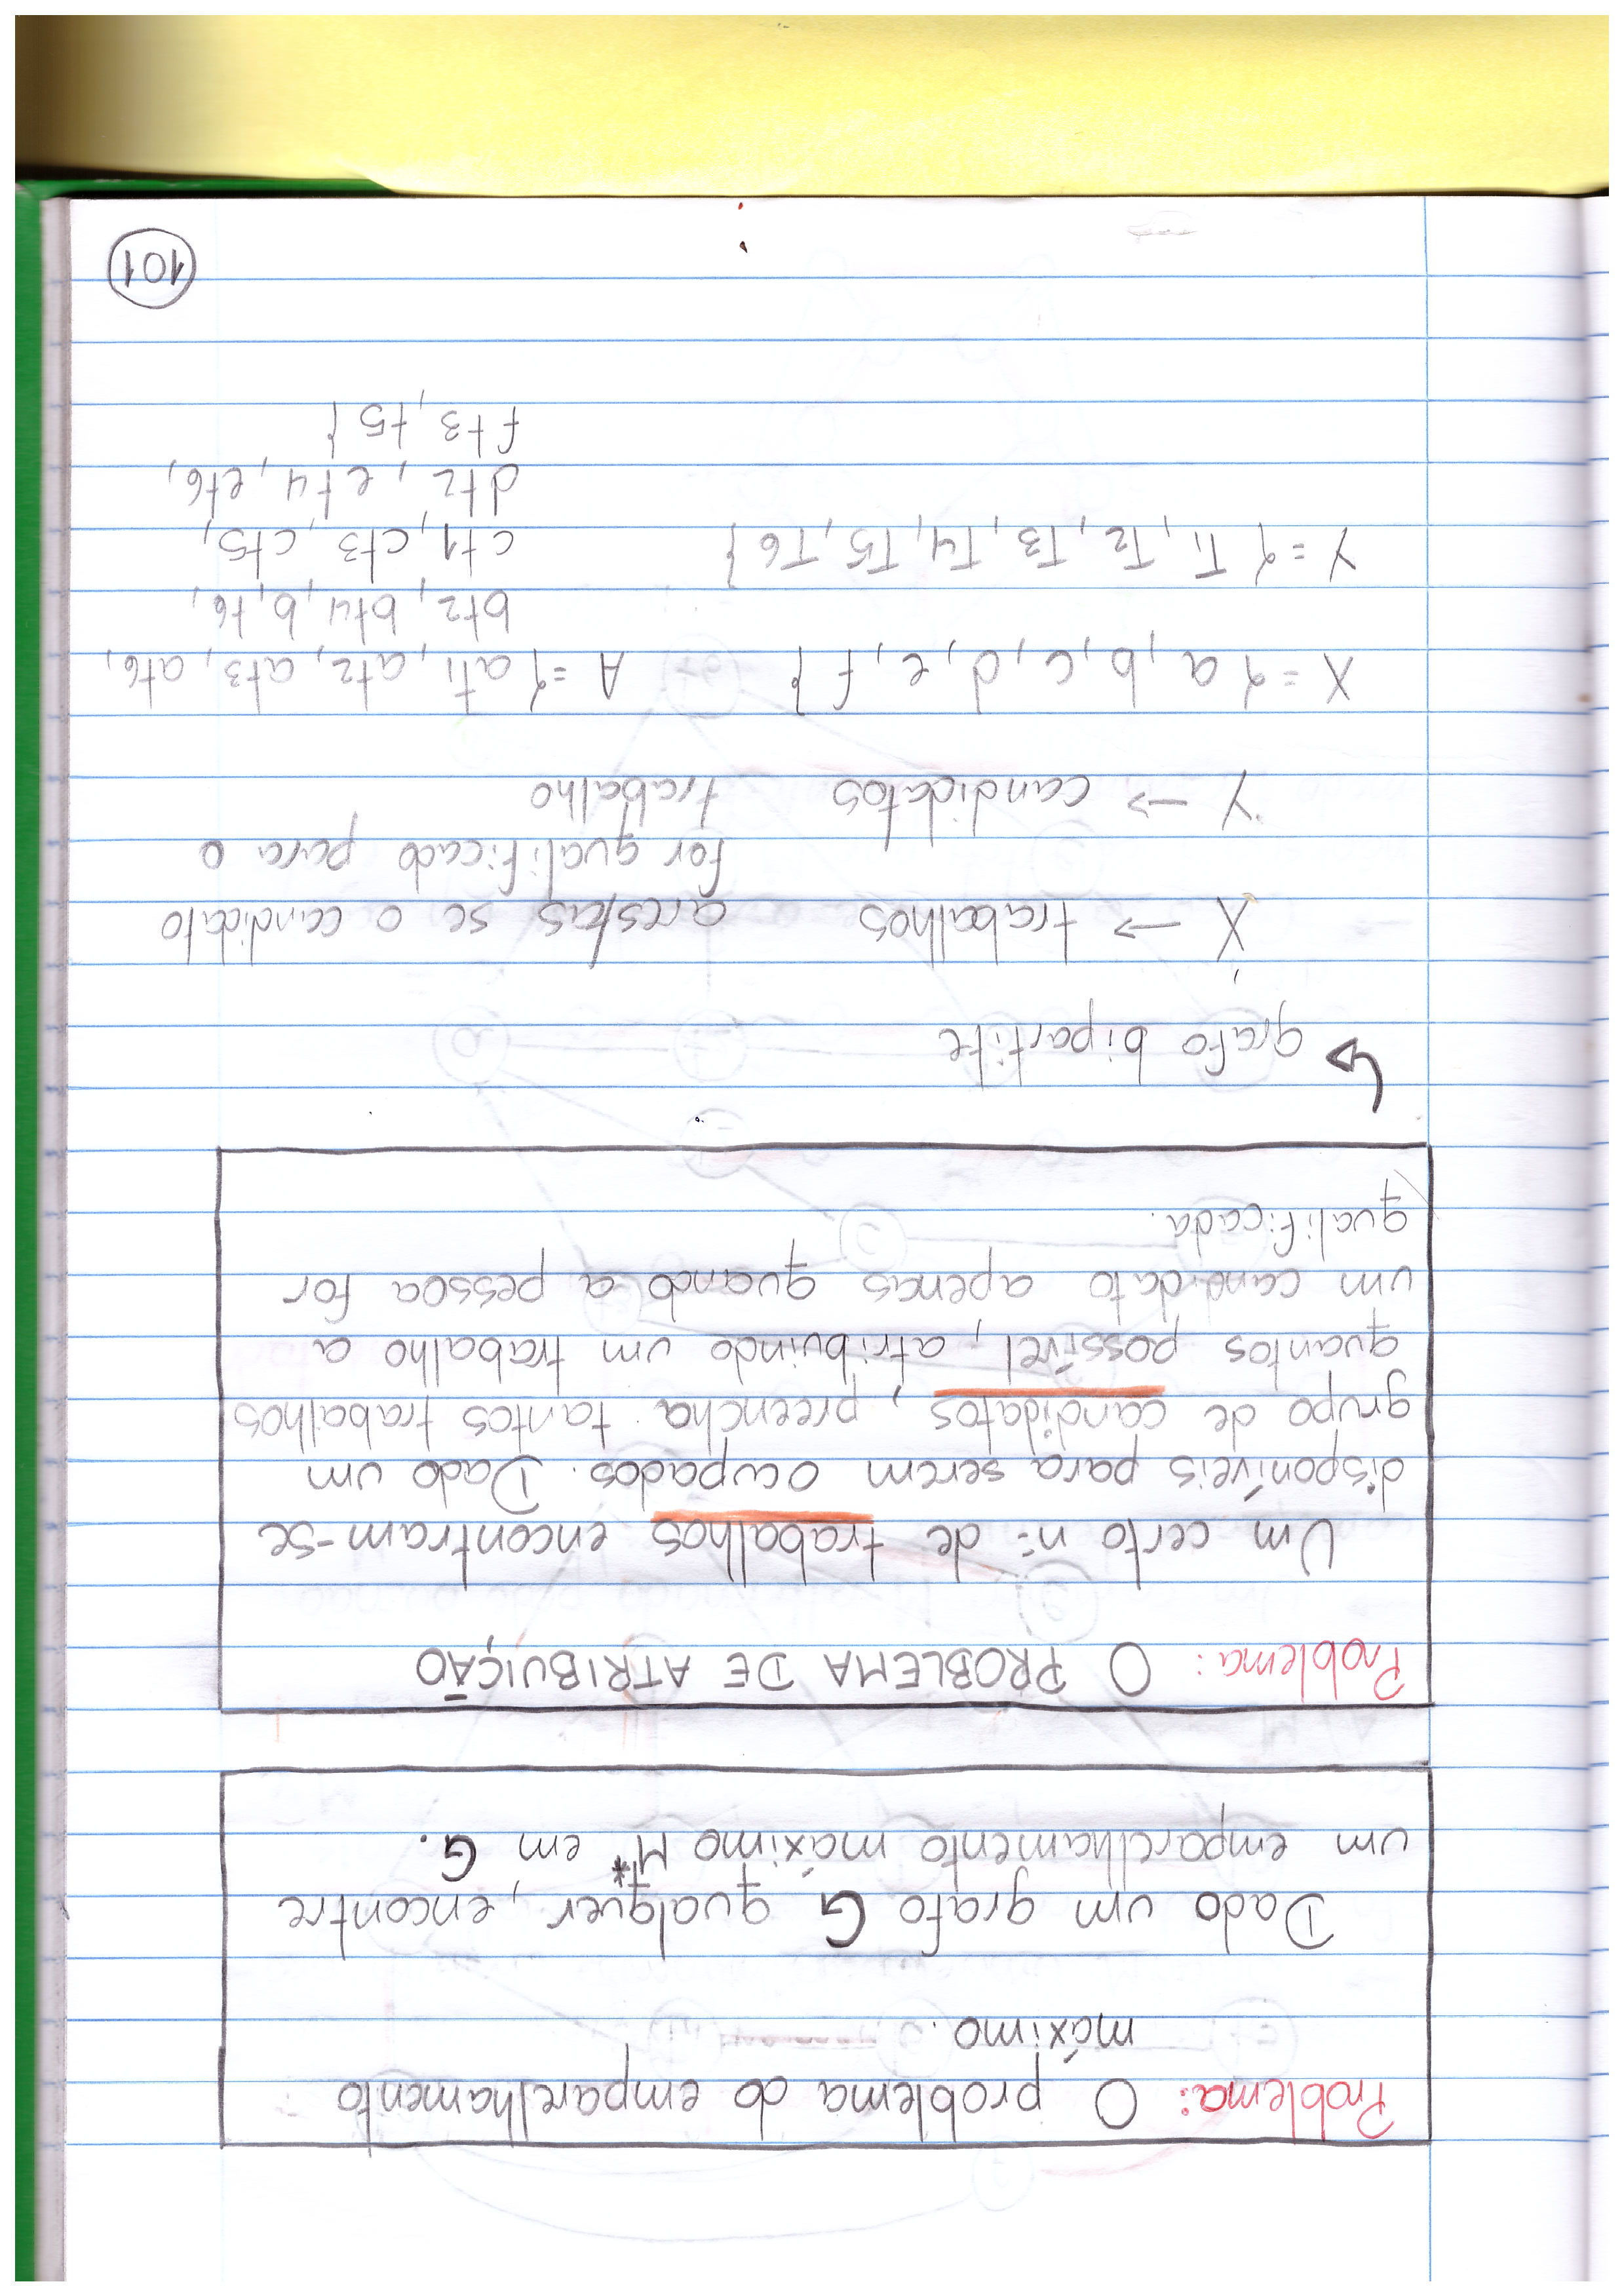 Problema: O problema do emparelhamento
máximo.
Dado um grafo G qualquer, encontre
um emparelhamento máximo M* em G.
Problema: O PROBLEMA DE ATRIBUIÇÃO
Um certo nº de trabalhos encontram-se
disponíveis para serem ocupados. Dado um
grupo de candidatos, preencha tantos trabalhos
quantos possível, atribuindo um trabalho a
um candidato apenas quando a pessoa for
qualificada.
↳ grafo bipartite
X → trabalhos
Y → candidatos
arestas se o candidato
for qualificado para o
trabalho
X = { a, b, c, d, e, f }
Y = { T1, T2, T3, T4, T5, T6 }
A = { at1, at2, at3, at6,
bt2, bt4, b, t6,
ct1, ct3, ct5,
dt2, et4, et6,
ft3, t5 }
101